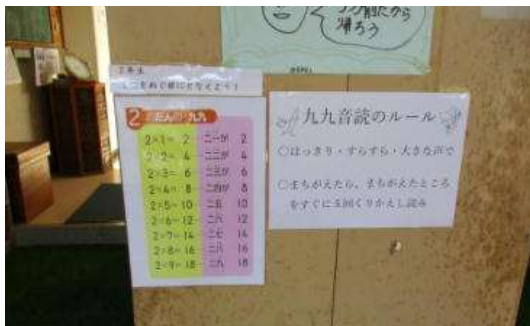 帰ろう
2年生
2のだんの九九
2×1= 2 二一が 2
2×2= 4 二二が 4
2×3= 6 二三が 6
2×4= 8 二四が 8
2×5=10 二五 10
2×6=12 二六 12
2×7=14 二七 14
2×8=16 二八 16
2×9=18 二九 18
九九音読のルール
○はっきり・すらすら・大きな声で
○まちがえたら、まちがえたところ
をすぐに5回くりかえし読み